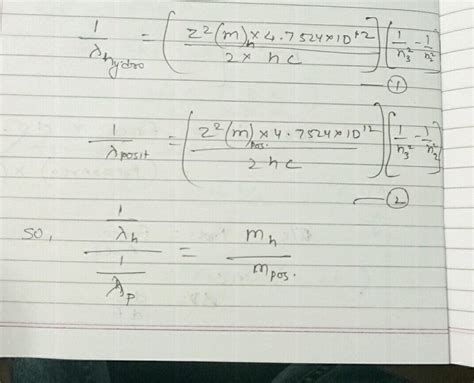 1/λhydro = (z²(m)h × 4.7524×10¹² / 2 × hc) [1/n₃² - 1/n₂²]
— ①
1/λposit = (z²(m)pos. × 4.7524×10¹² / 2hc) [1/n₃² - 1/n₂²]
— ②
so, (1/λh) / (1/λp) = mh / mpos.